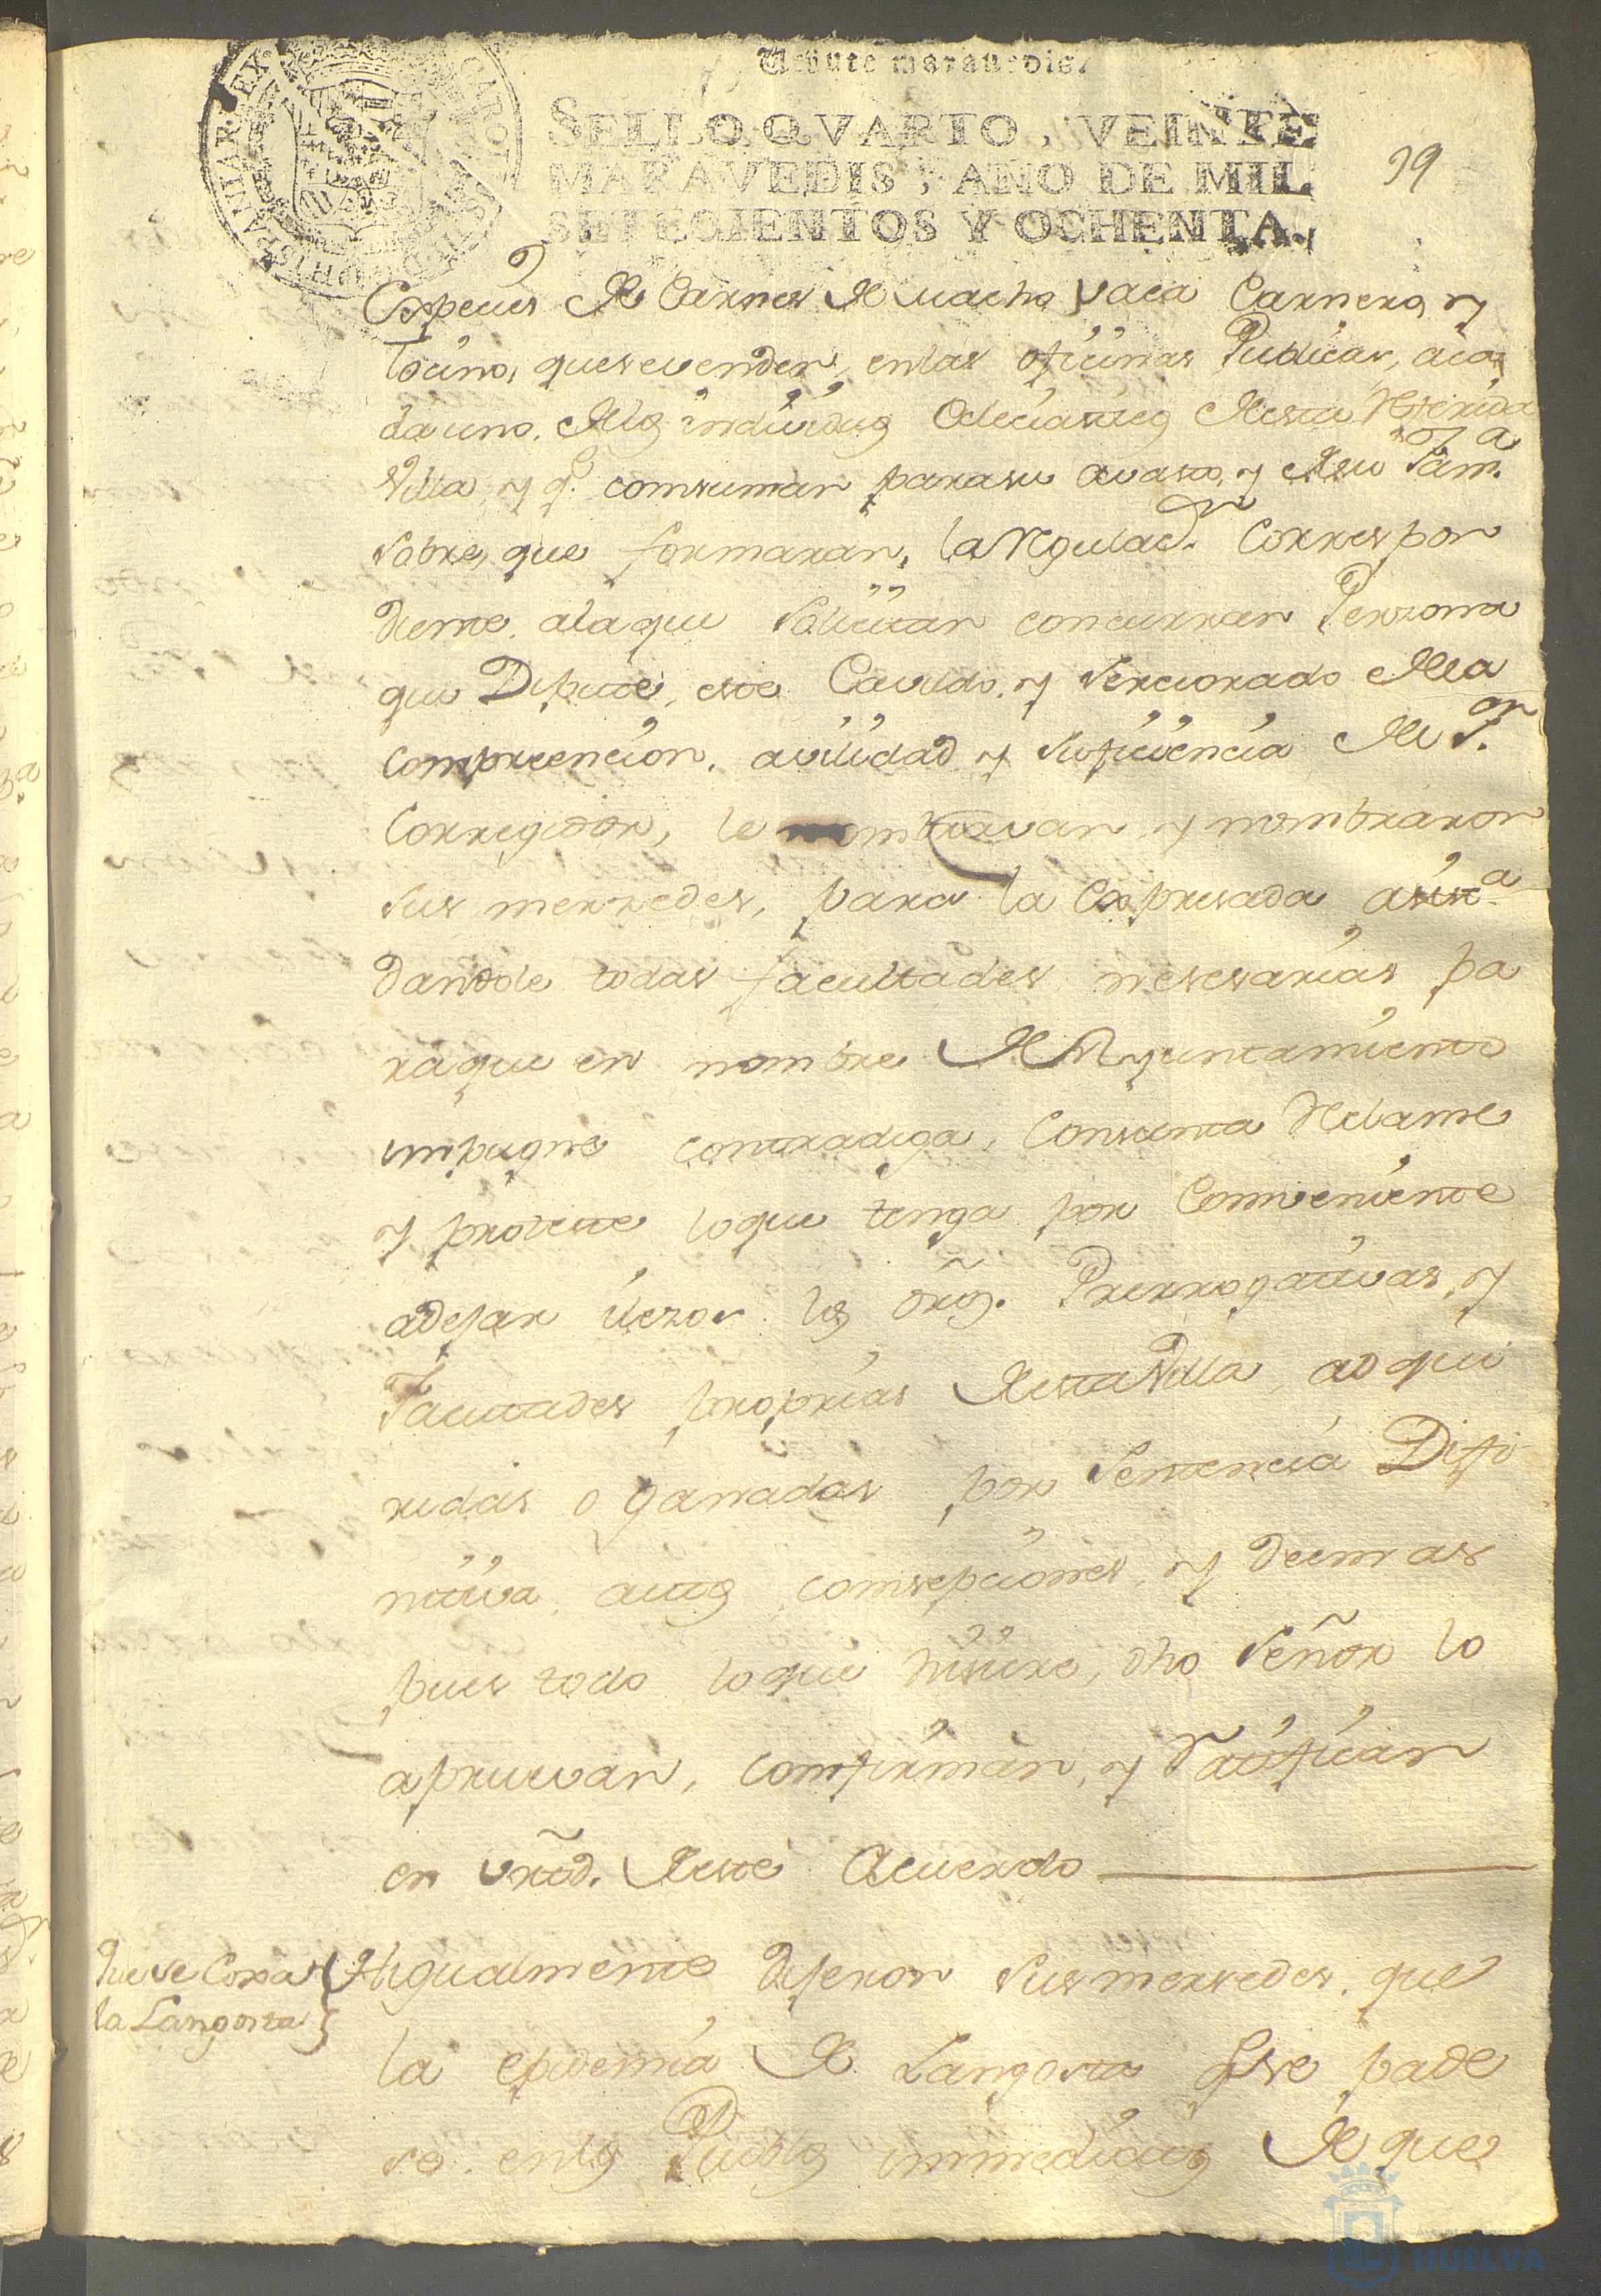 Veinte maravedis.
SELLO QVARTO, VEINTE
MARAVEDIS, AÑO DE MIL
SETECIENTOS Y OCHENTA.
39
Especies de Carnes de macho vaca Carnero, y
tocino, que se venden, en las oficinas Publicas, a ca
da uno, de los individuos Eclesiasticos de esta referida
Villa, y q.e comsuman para su avasto, y de su fam.a
sobre, que formaran, la regulac.on Correspon
diente, a la que solicitan concurran Perzona
que Dipute, este Cavildo, y serciorado de la
compreencion, avilidad, y suficiencia del S.or
Corregidor, le nombravan, y nombraron
sus merzedes, para la Expresada asist.a
dandole todas facultades nesesarias pa
ra que en nombre del Ayuntamiento
impugne contradiga, Consienta Reclame
y proteste lo que tenga por Comveniente
a dejar ilezos los drõs. Prerrogativas, y
Facultades proprias de esta Villa, adqui
ridas o ganadas por Sentencia Difi
nitiva, autos, comsepciones, y demas
pues todo lo que hisiere, dho Señor lo
apruevan, comfirman, y Ratifican
en vrtãd. de este Acuerdo
Que se Coxa
la Langosta
Higualmente digeron sus mersedes, que
la epidemia de Langosta q.e se pade
se en los Pueblos immediatos de que
HUELVA